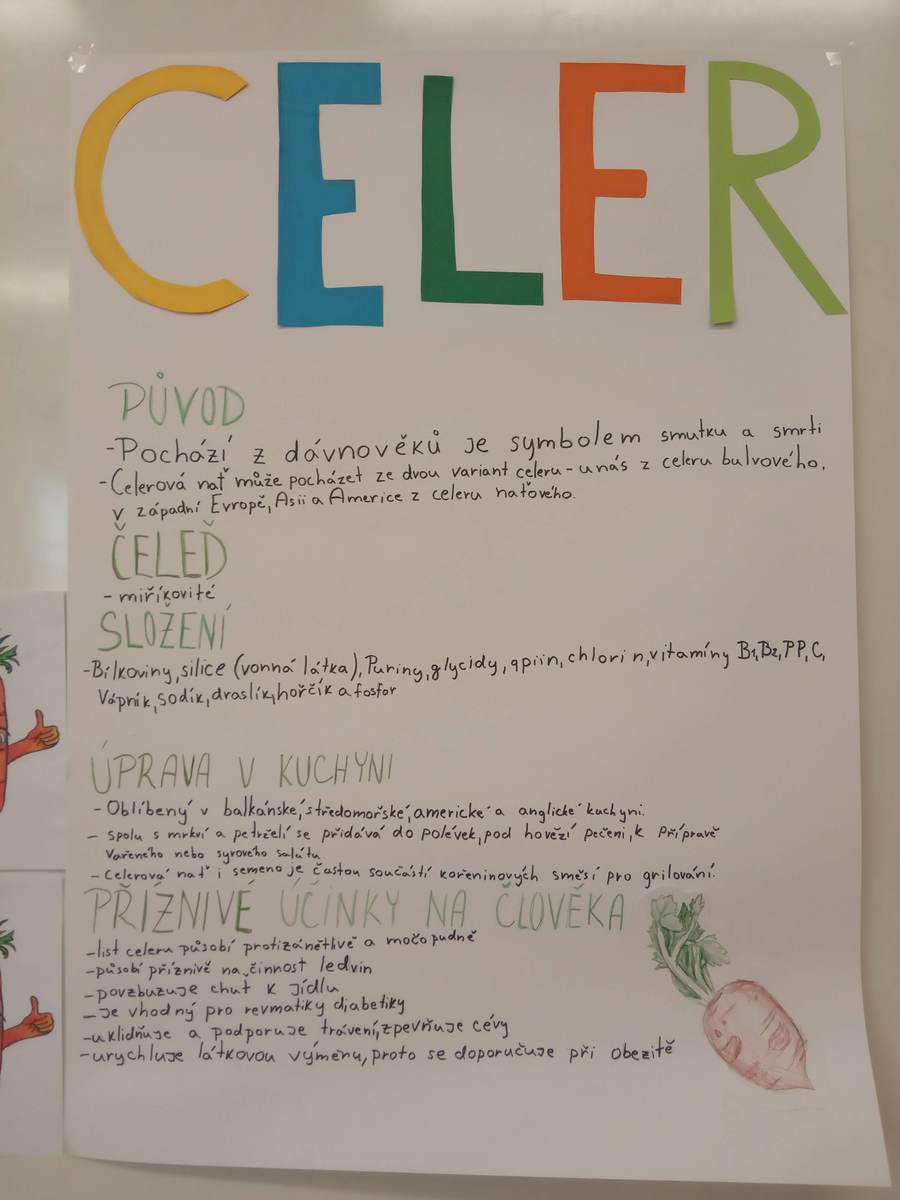 CELER
PŮVOD
-Pochází z dávnověků je symbolem smutku a smrti
-Celerová nať může pocházet ze dvou variant celeru - u nás z celeru bulvového,
v západní Evropě, Asii a Americe z celeru naťového.
ČELEĎ
- miříkovité
SLOŽENÍ
-Bílkoviny, silice (vonná látka), Puriny, glycidy, apiin, chlorin, vitamíny B1, B2, PP, C,
Vápník, sodík, draslík, hořčík a fosfor
ÚPRAVA V KUCHYNI
- Oblíbený v balkánské, středomořské, americké a anglické kuchyni.
- spolu s mrkví a petrželí se přidává do polévek, pod hovězí pečeni, k přípravě
Vařeného nebo syrového salátu
- Celerová nať i semeno je častou součástí kořeninových směsí pro grilování.
PŘÍZNIVÉ ÚČINKY NA ČLOVĚKA
-list celeru působí protizánětlivě a močopudně
-působí příznivě na činnost ledvin
-povzbuzuje chuť k jídlu
-je vhodný pro revmatiky diabetiky
-uklidňuje a podporuje trávení, zpevňuje cévy
-urychluje látkovou výměnu, proto se doporučuje při obezitě